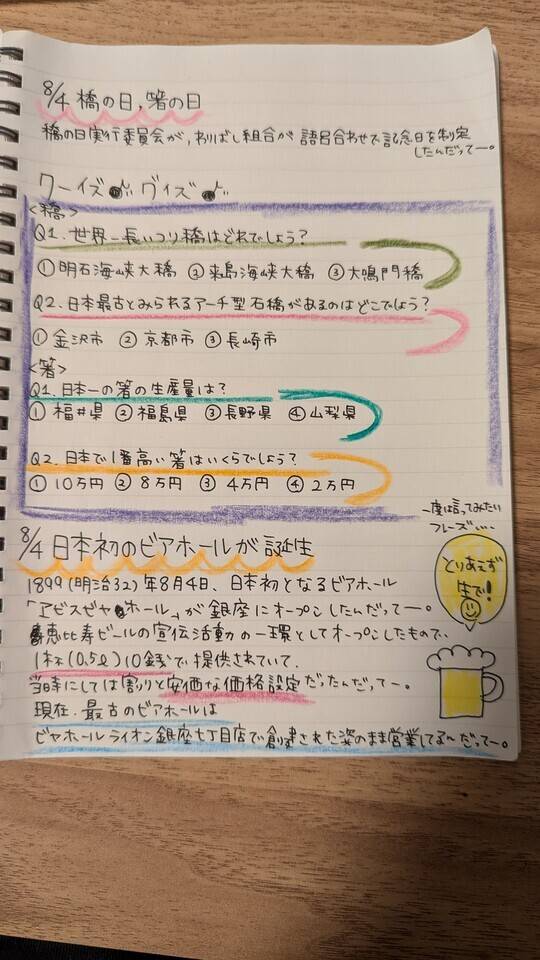 8/4 橋の日,箸の日
橋の日実行委員会が,わりばし組合が 語呂合わせで記念日を制定
したんだってー。
クーイズ♪ ヴイズ♪
<橋>
Q1.世界一長いつり橋はどれでしょう?
①明石海峡大橋 ②来島海峡大橋 ③大鳴門橋
Q2.日本最古とみられるアーチ型石橋があるのはどこでしょう?
①金沢市 ②京都市 ③長崎市
<箸>
Q1.日本一の箸の生産量は?
①福井県 ②福島県 ③長野県 ④山梨県
Q2.日本で1番高い箸はいくらでしょう?
①10万円 ②8万円 ③4万円 ④2万円
一度は言ってみたい
フレーズ...
8/4 日本初のビアホールが誕生
とりあえず
生で!
1899(明治32)年8月4日、日本初となるビアホール
「アビスビヤホール」が銀座にオープンしたんだってー。
恵比寿ビールの宣伝活動の一環としてオープンしたもので、
1杯(0.5ℓ)10銭で提供されていて、
当時にしては割りと安価な価格設定だったんだってー。
現在、最古のビアホールは
ビヤホールライオン銀座七丁目店で創建された姿のまま営業してるんだってー。